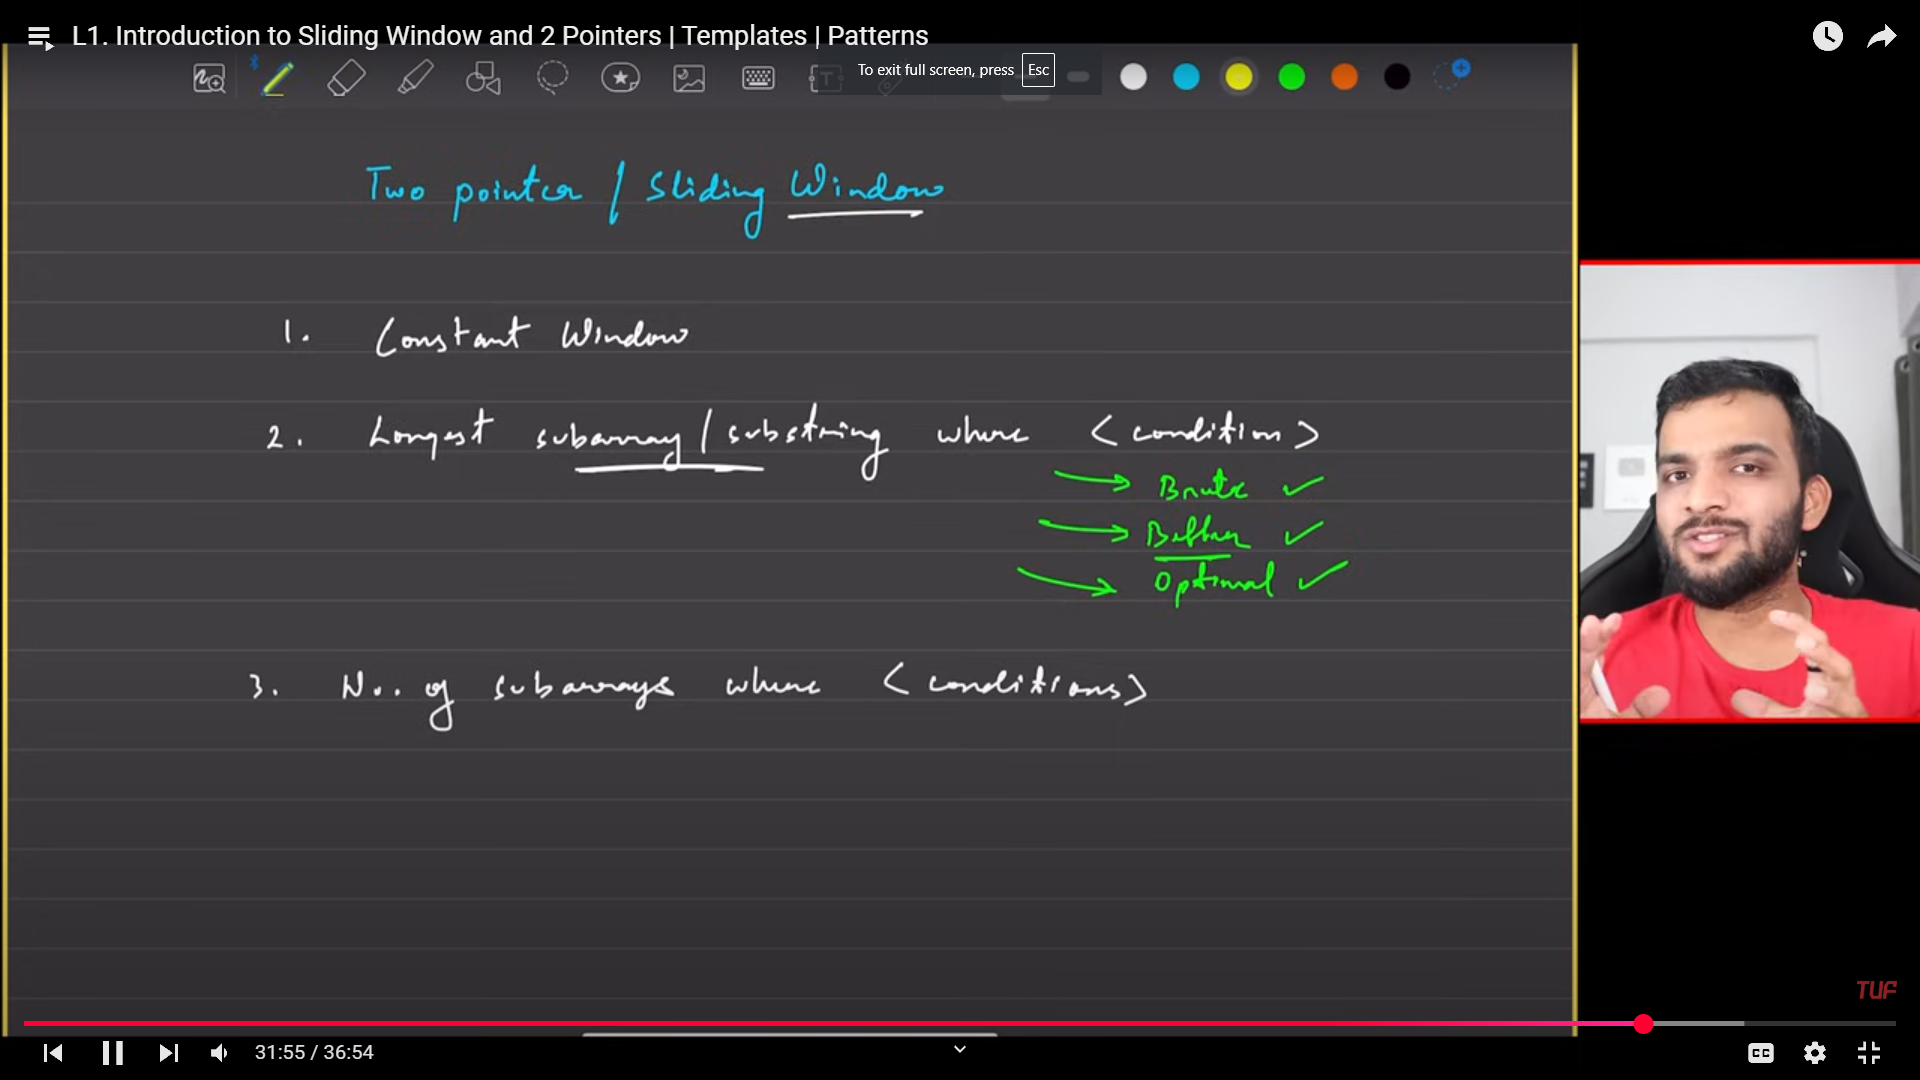 L1. Introduction to Sliding Window and 2 Pointers | Templates | Patterns
To exit full screen, press Esc
Two pointer / Sliding Window
1. Constant Window
2. Longest subarray / substring where <condition>
→ Brute ✓
→ Better ✓
→ Optimal ✓
3. No. of subarrays where <conditions>
TUF
31:55 / 36:54
CC